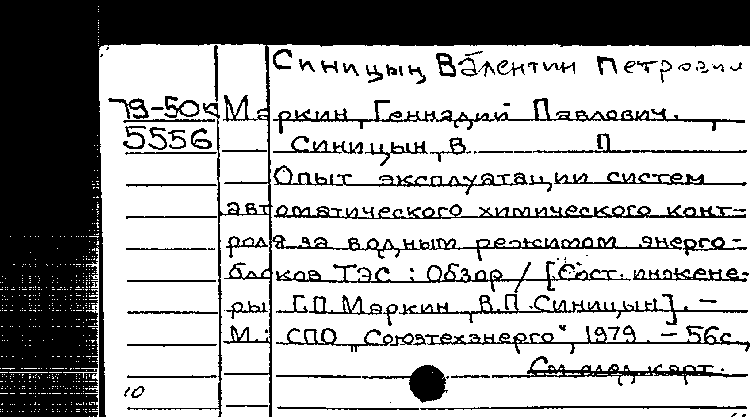 Синицын Валентин Петрович
79-50к Маркин, Геннадий Павлович.,
5556 Синицын, В П
Опыт эксплуатации систем
автоматического химического конт-
роля за водным режимом энерго-
блоков ТЭС : Обзор / [Сост. инжене-
ры Г.П. Маркин, В.П. Синицын]. –
М.: СПО „Союзтехэнерго“, 1979. – 56с,
См след. карт.
10